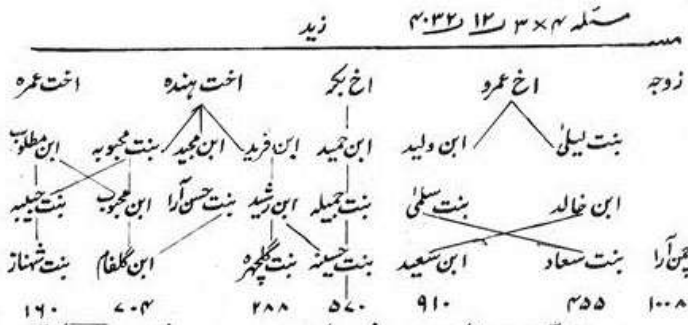 مسئلہ ۴ × ۳ ر ۱۲ ر ۴۰۳۲ زید
زوجہ اخ عمرو اخ بکر اخت ہندہ اخت عمرہ
بنت لیلیٰ ابن ولید ابن حمید ابن فرید ابن مجید بنت محبوبہ ابن مطلوب
ابن خالد بنت سلمیٰ بنت جمیلہ ابن رشید بنت حسن آرا ابن محبوب بنت حبیبہ
چمن آرا بنت سعاد ابن سعید بنت حسینہ بنت گلچہرہ ابن گلفام بنت شہناز
۱۰۰۸ ۴۵۵ ۹۱۰ ۵۷۰ ۲۸۸ ۷۰۴ ۱۶۰